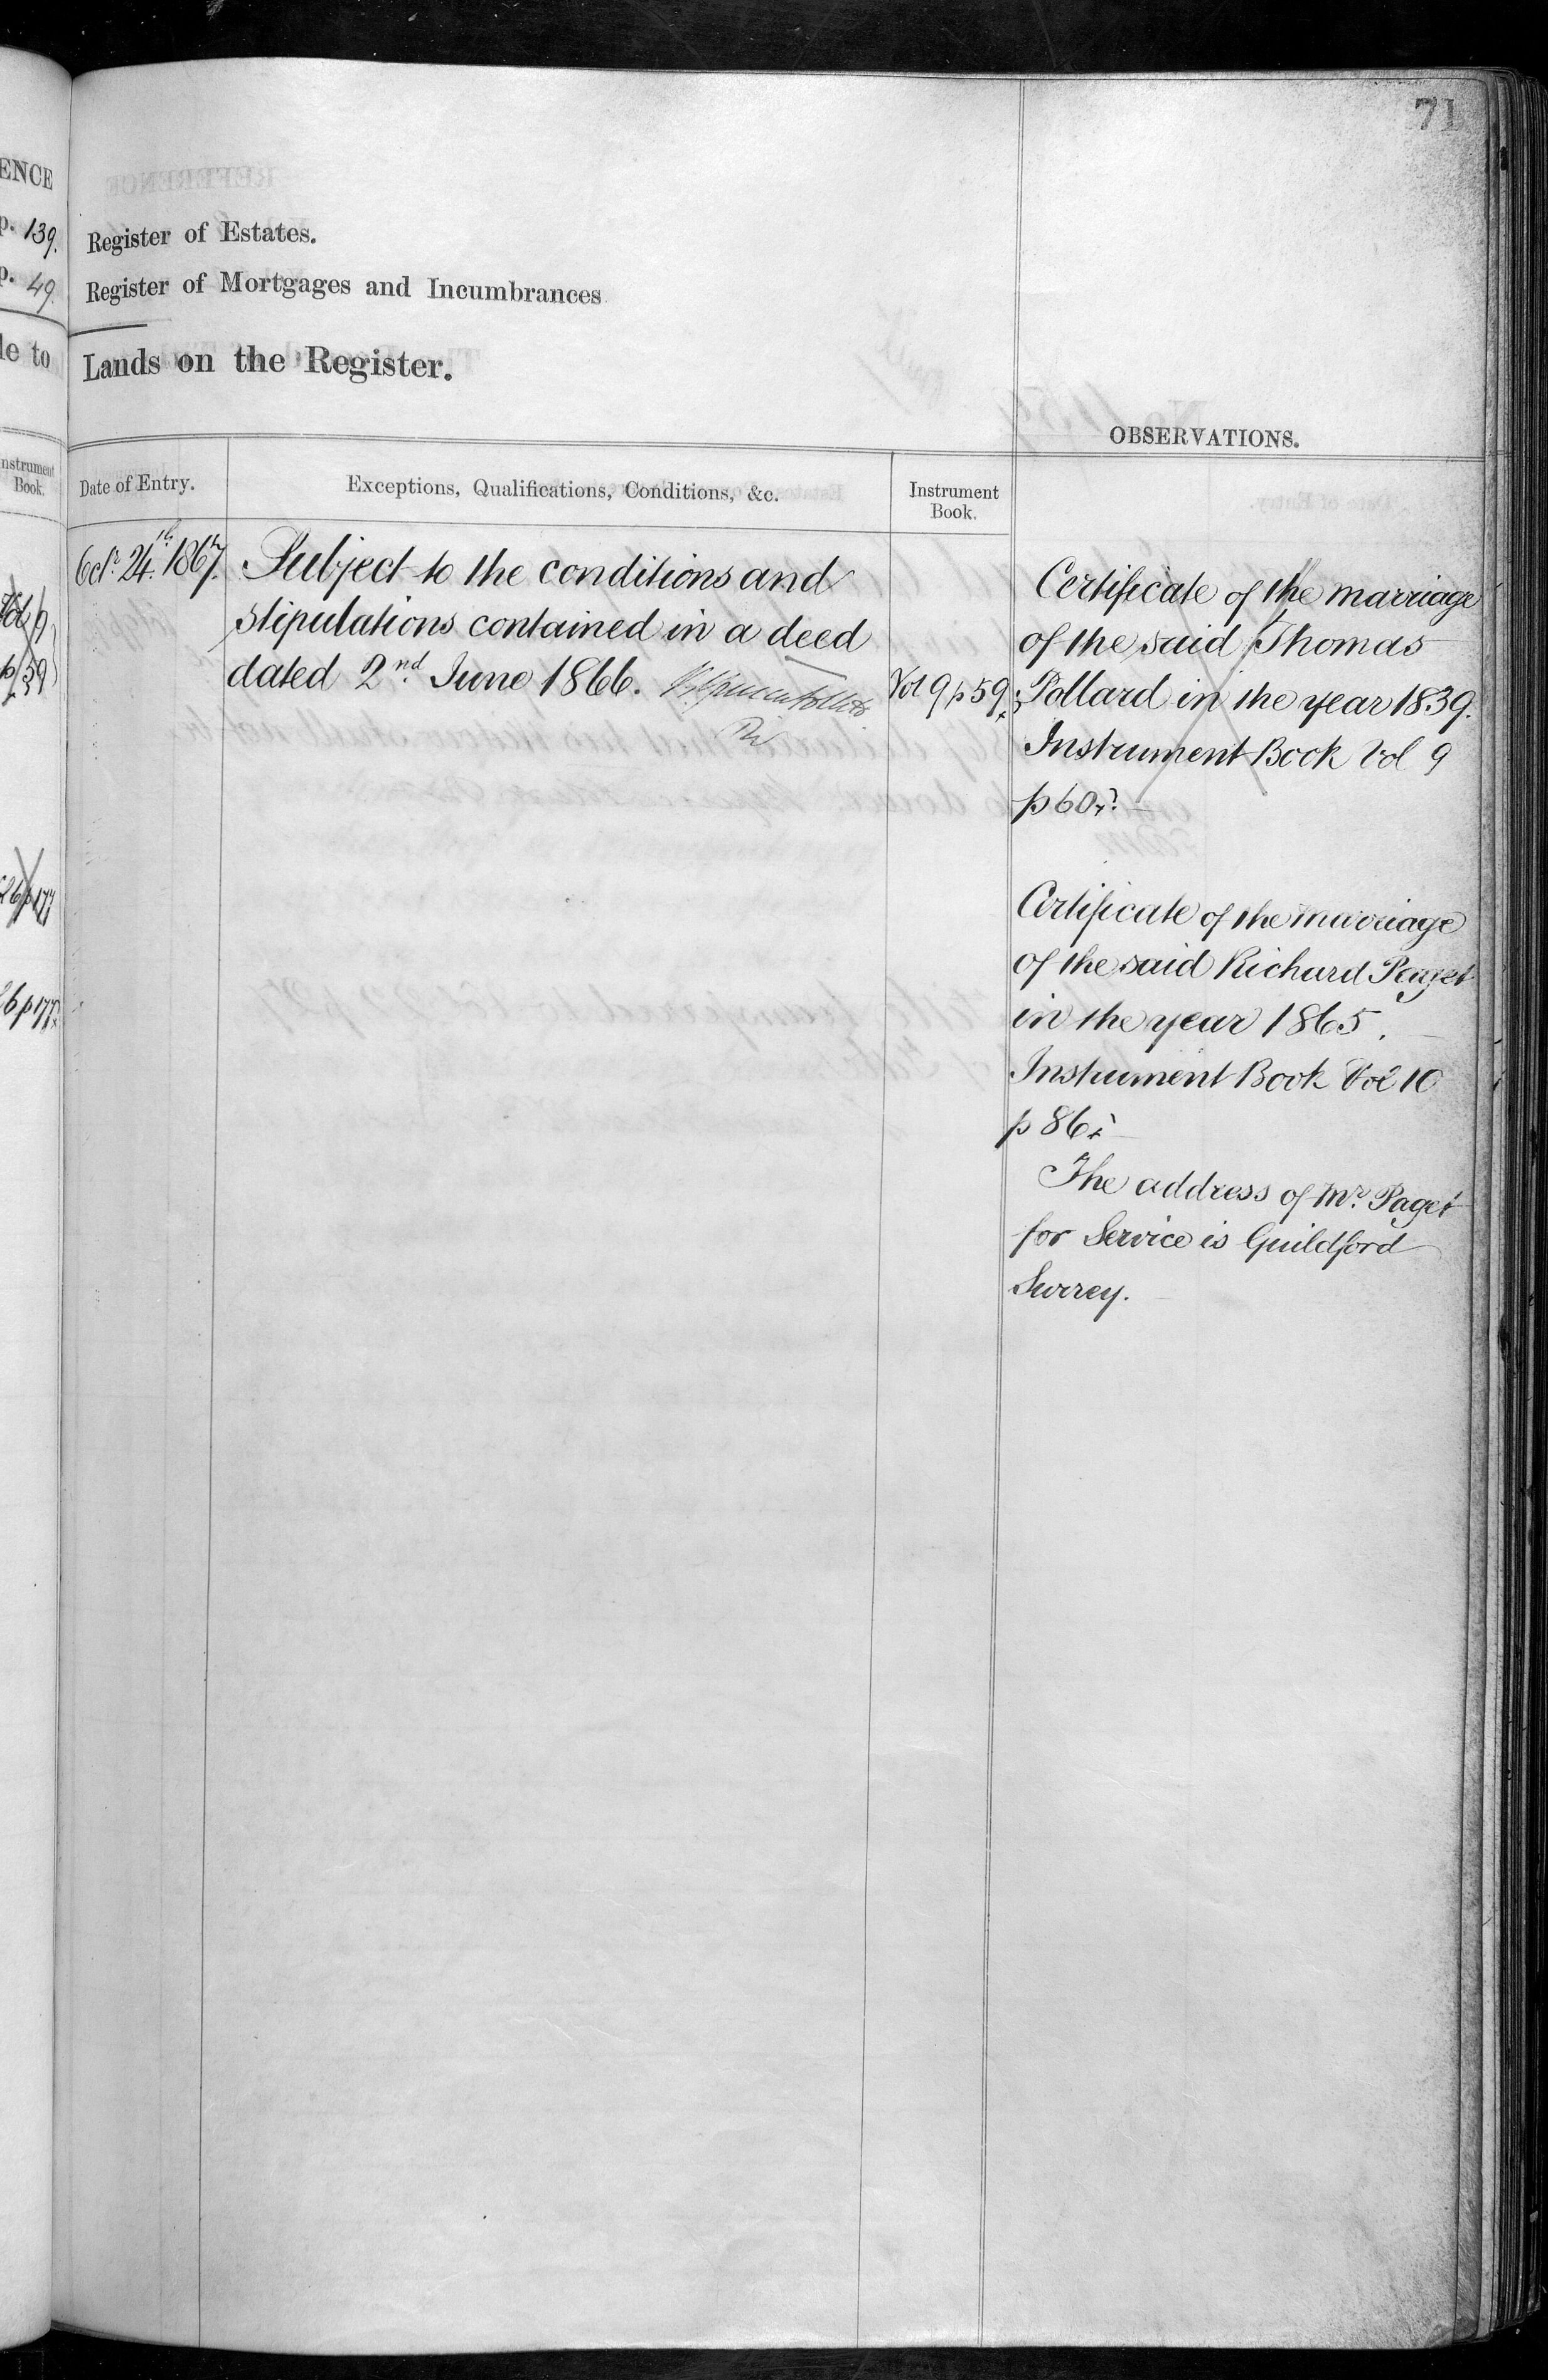 71
ENCE
p. 139.
p. 49.
le to
Instrument
Book.
Vol 9
p 59
26 p 177
26 p 177
Register of Estates.
Register of Mortgages and Incumbrances
Lands on the Register.
OBSERVATIONS.
Date of Entry.
Exceptions, Qualifications, Conditions, &c.
Instrument
Book.
Octr. 24th. 1867.
Subject to the conditions and
stipulations contained in a deed
dated 2nd June 1866.
Vol 9 p 59
Certificate of the marriage
of the said Thomas
Pollard in the year 1839.
Instrument Book Vol 9
p 60
Certificate of the marriage
of the said Richard Paget
in the year 1865.
Instrument Book Vol 10
p 86
The address of Mr. Paget
for Service is Guildford
Surrey.